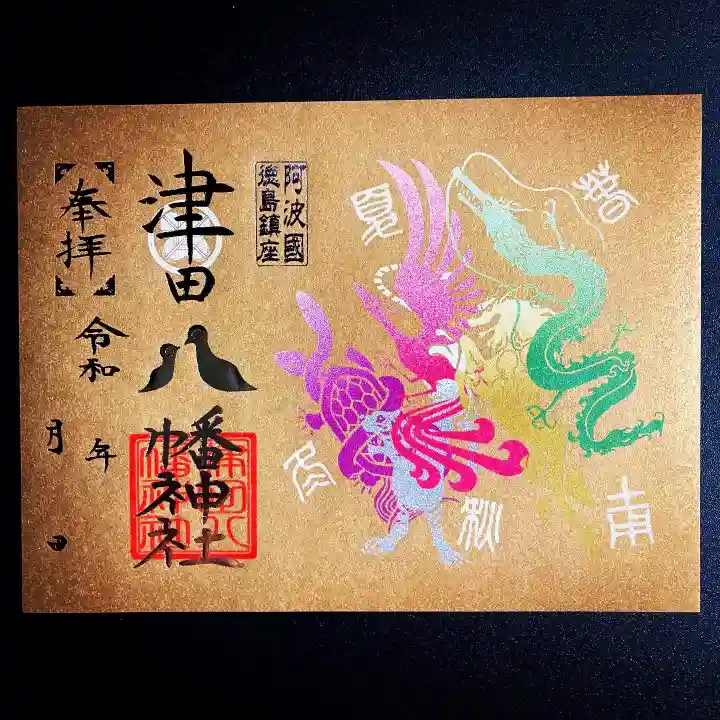 春
夏
秋
冬
阿波國
徳島鎮座
津田八幡神社
奉拝
令和 年
月 日